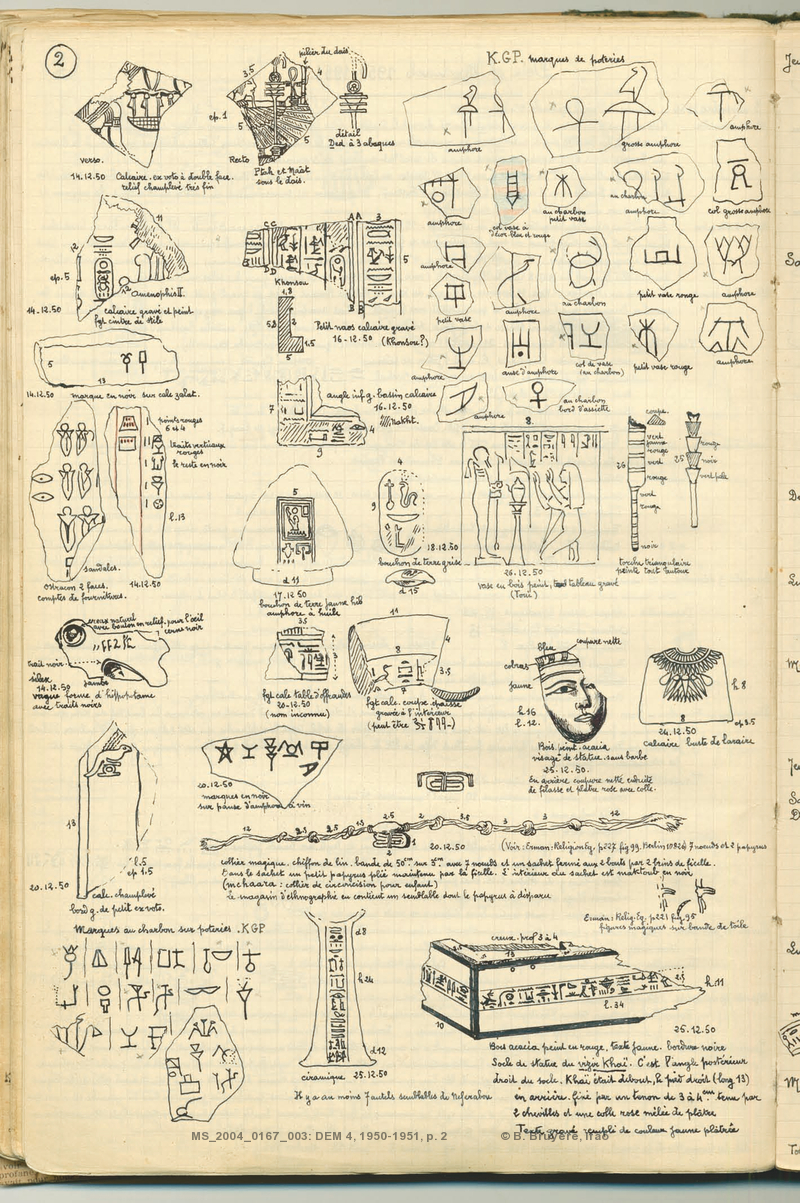 2
K.G.P. marques de poteries
pilier du dais
3,5
4
ep. 1
5
5
détail
Ded à 3 abaques
verso.
Recto
Ptah et Maât
sous le dais.
14.12.50 Calcaire. ex voto à double face.
relief champlevé très fin
amphore
grosse amphore
amphore
amphore
col vase à
décor bleu et rouge
au charbon
petit vase
au charbon
amphore
col grosse amphore
11
12
ep. 5
Amenophis II.
14-12.50
calcaire gravé et peint
fgt cintre de stèle
C C
A A
3
5
D D
B B
Khonsou
1,8
5,8
2
1,5
5
Petit naos calcaire gravé
16-12.50 (Khonsou?)
amphore
petit vase
au charbon
petit vase rouge
amphore
5
13
14.12.50 marque en noir sur calc. galat.
amphore
anse d'amphore
col de vase
(au charbon)
petit vase rouge
amphore
7
4
9
angle inf. g. bassin calcaire
16.12.50
Nakht.
amphore
au charbon
bord d'assiette
points rouges
6 et 4
traits verticaux
rouges
le reste en noir
l. 13
sandales.
Ostracon 2 faces. 14.12.50
comptes de fournitures.
5
d 11
17.12.50
bouchon de terre jaune
amphore à huile
4
9
18.12.50
bouchon de terre grise
d 15
8.
26.12.50
vase en bois peint, tableau gravé
(Touï)
coupe.
vert
jaune
rouge
vert
26
rouge
vert
rouge
noir
rouge
25
noir
vert pâle
torche triangulaire
peinte tout autour
creux naturel
avec bouton en relief. pour l'œil
cerne noir
trait noir
silex
14.12.50
jambe
vague forme d'hippopotame
avec traits noirs
3,5
3
fgt calc table d'offrandes
20-12.50
(nom inconnu)
11
4
8
3,5
7
fgt calc. coupe épaisse
gravée à l'intérieur
(peut être
bleu
coupure nette
cobras
jaune
h. 16
l. 12.
Bois peint. acacia
visage de statue. sans barbe
25.12.50.
En arrière coupure nette enduite
de filasse et plâtre rose avec colle.
h 8
8
ep 3.5
24.12.50
calcaire buste de laraire
13
l. 5
ep 4.5
20.12.50
calc. champlevé
bord g. de petit ex voto.
20.12.50
marques en noir
sur panse d'amphore à vin
12
2,5
2,5
2,5
2
3,5
3
3
12
20.12.50
(Voir : Erman : Religion Eg. p 227 fig 99. Berlin 10826) 7 nœuds et 2 papyrus
collier magique. chiffon de lin. bande de 50cm sur 5cm avec 7 nœuds et un sachet fermé aux 2 bouts par 2 brins de ficelle.
Dans le sachet un petit papyrus plié maintenu par la ficelle. L'intérieur du sachet est maktoub en noir
(mchaara : collier de circoncision pour enfant)
Le magasin d'ethnographie en contient un semblable dont le papyrus a disparu
Erman : Relig. Eg. p 221 fig 95
figures magiques sur bande de toile.
Marques au charbon sur poteries. KGP
d 8
h 24
d 12
céramique 25.12.50
Il y a au moins 7 autels semblables de Neferabou
creux. prof 3 à 4
13
2,5
h. 11
l. 34
10
25.12.50
Bois acacia peint en rouge, texte jaune. bordure noire
Socle de statue du vizir Khaï. C'est l'angle postérieur
droit du socle. Khaï était debout, le pied droit (long 13)
en arrière. fixé par un tenon de 3 à 4cm tenu par
2 chevilles et une colle rose mêlée de plâtre
Texte gravé rempli de couleur jaune plâtrée
MS_2004_0167_003: DEM 4, 1950-1951, p. 2
© B. Bruyère, Ifao